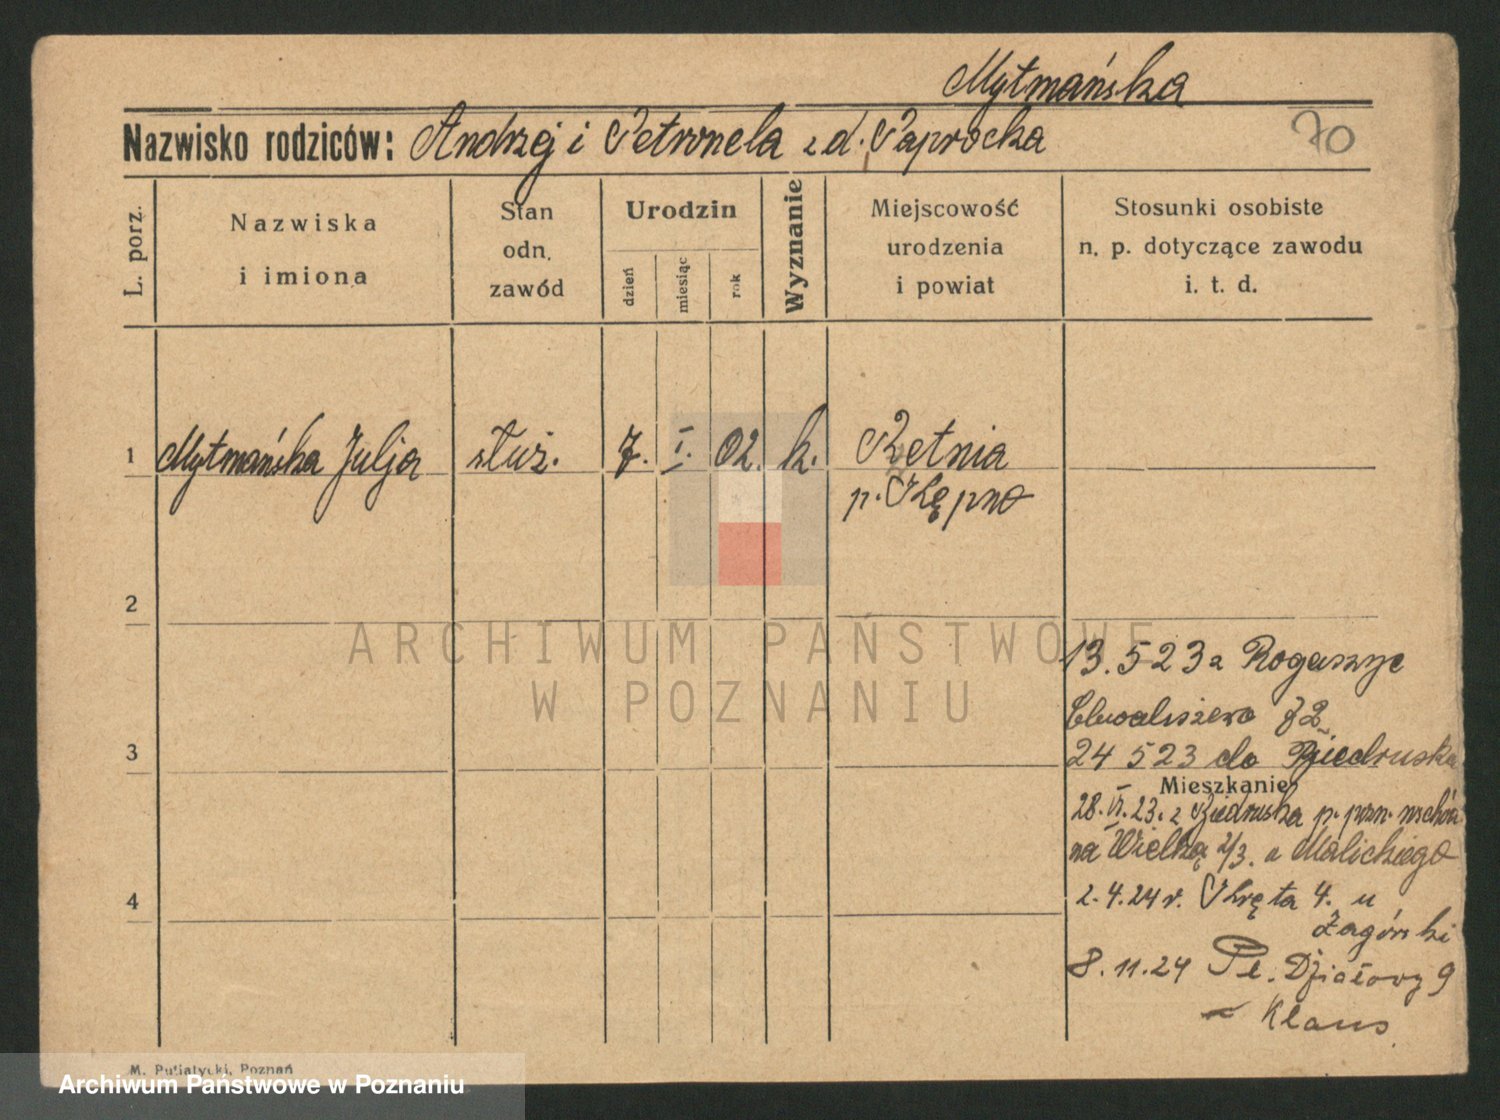 Mytmańska
Nazwisko rodziców: Andrzej i Petronela z d. Paprocka
70
L. porz.
Nazwiska
i imiona
Stan
odn.
zawód
Urodzin
dzień
miesiąc
rok
Wyznanie
Miejscowość
urodzenia
i powiat
Stosunki osobiste
n. p. dotyczące zawodu
i. t. d.
1 Mytmańska Julja służ. 7. I. 02. k. Retnia
p. Kępno
2
13. 5 23 z Rogaszyc
Chwaliszewo 72
3
24 5 23 do Biedruska
Mieszkanie
28. VI. 23. z Biedruska p. pozn. wschód
na Wielką 2/3. u Malickiego
4
2. 4. 24 r. Kręta 4. u
Zagórski
8. 11. 24 Pl. Działowy 9
Klaus
M. Putiatycki, Poznań
ARCHIWUM PAŃSTWOWE
W POZNANIU
Archiwum Państwowe w Poznaniu